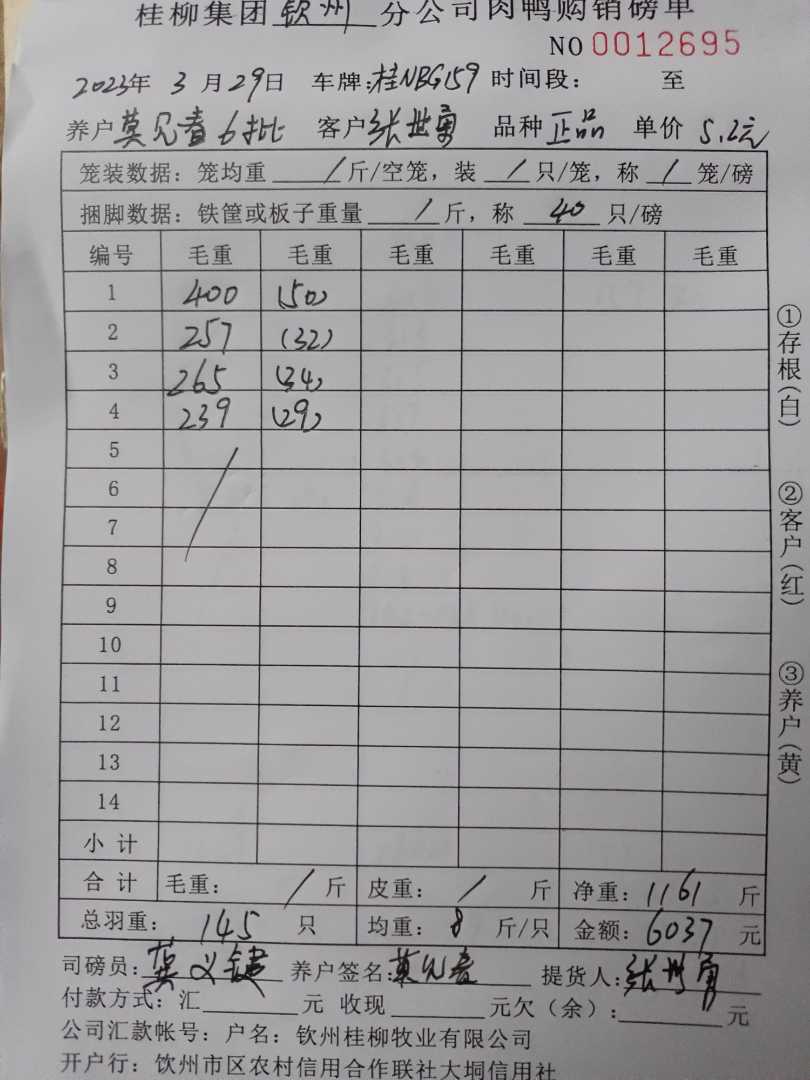 桂柳集团钦州分公司肉鸭购销磅单
NO 0012695
2023年 3 月 29日 车牌:桂NBG159 时间段: 至
养户 莫 6批 客户 张世勇 品种 正品 单价 5.2元
笼装数据: 笼均重 / 斤/空笼, 装 / 只/笼, 称 / 笼/磅
捆脚数据: 铁筐或板子重量 / 斤, 称 40 只/磅
编号 毛重 毛重 毛重 毛重 毛重 毛重
1 400 (50)
2 257 (32)
3 265 (34)
4 239 (29)
5
6
7
8
9
10
11
12
13
14
小 计
合 计 毛重: / 斤 皮重: / 斤 净重: 1161 斤
总羽重: 145 只 均重: 8 斤/只 金额: 6037 元
司磅员: 义键 养户签名: 莫 提货人: 张世勇
付款方式: 汇 元 收现 元欠(余): 元
公司汇款帐号: 户名: 钦州桂柳牧业有限公司
开户行: 钦州市区农村信用合作联社大垌信用社
①存根(白)
②客户(红)
③养户(黄)